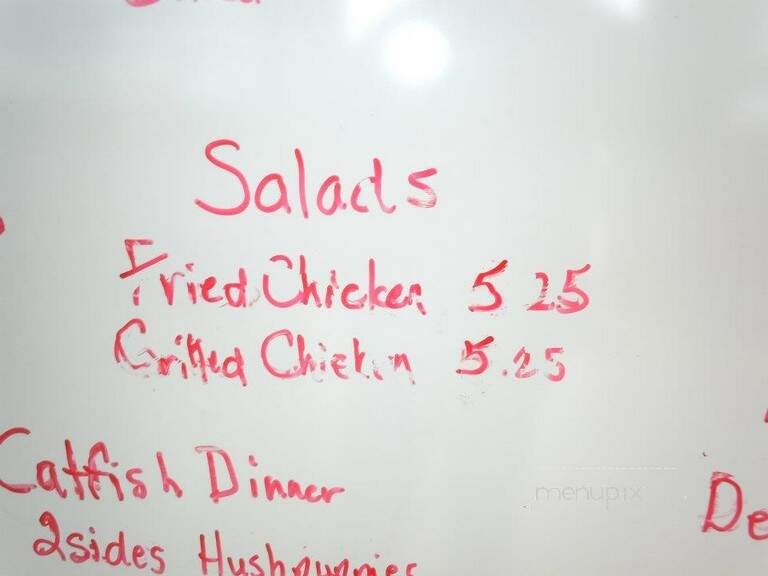 Salads
Fried Chicken 5 25
Grilled Chicken 5.25
Catfish Dinner
2sides Hushpuppies
De
menupix